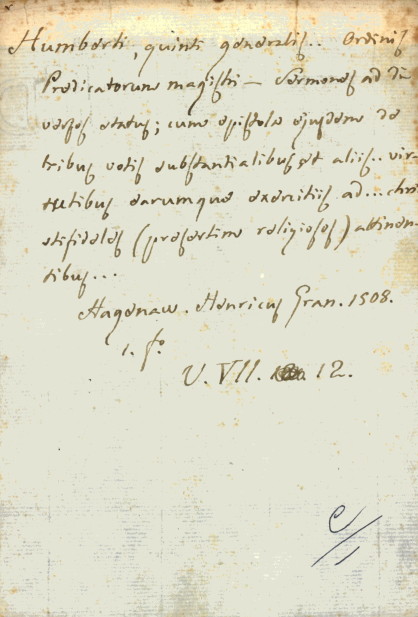 Humberti, quinti generalis.. Ordinis
Predicatorum magistri — Sermones ad di-
versos status; cum epistola ejusdem de
tribus votis substantialibus et aliis.. vir-
tutibus earumque exercitiis ad... chri
stifideles (presertim religiosos) attinen-
tibus...
Hagenaw. Henricus Gran. 1508.
1. fo.
U. VII. 12.